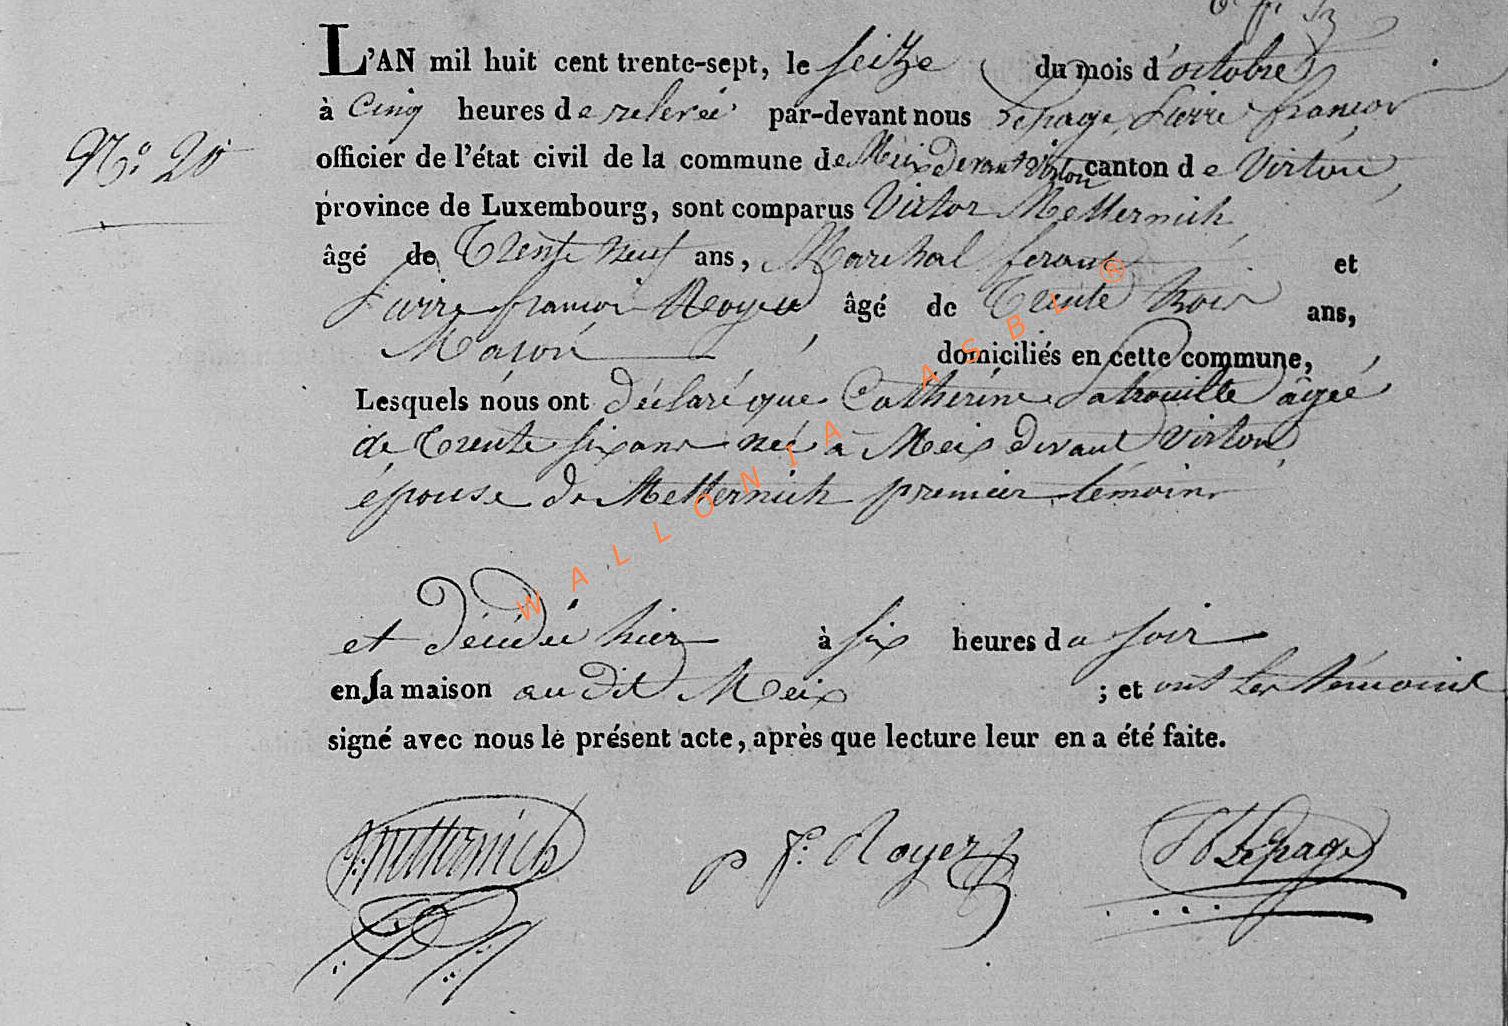 L'AN mil huit cent trente-sept, le seize du mois d'octobre
à Cinq heures de relevée par-devant nous Lepage Pierre françois
N.° 20
officier de l'état civil de la commune de Meix devant Virton canton de Virton,
province de Luxembourg, sont comparus Victor Metternich,
âgé de Trente neuf ans, Marechal ferant et
Pierre françois Royer âgé de Trente trois ans,
Maçon, domiciliés en cette commune,
Lesquels nous ont déclaré que Catherine Latrouille âgée
de Trente six ans née à Meix devant Virton,
épouse de Metternich premier témoins
et décédée hier à six heures du soir
en sa maison au dit Meix ; et ont les témoins
signé avec nous le présent acte, après que lecture leur en a été faite.
Metternich p f. Royer Lepage
WALLONIA ASBL ®